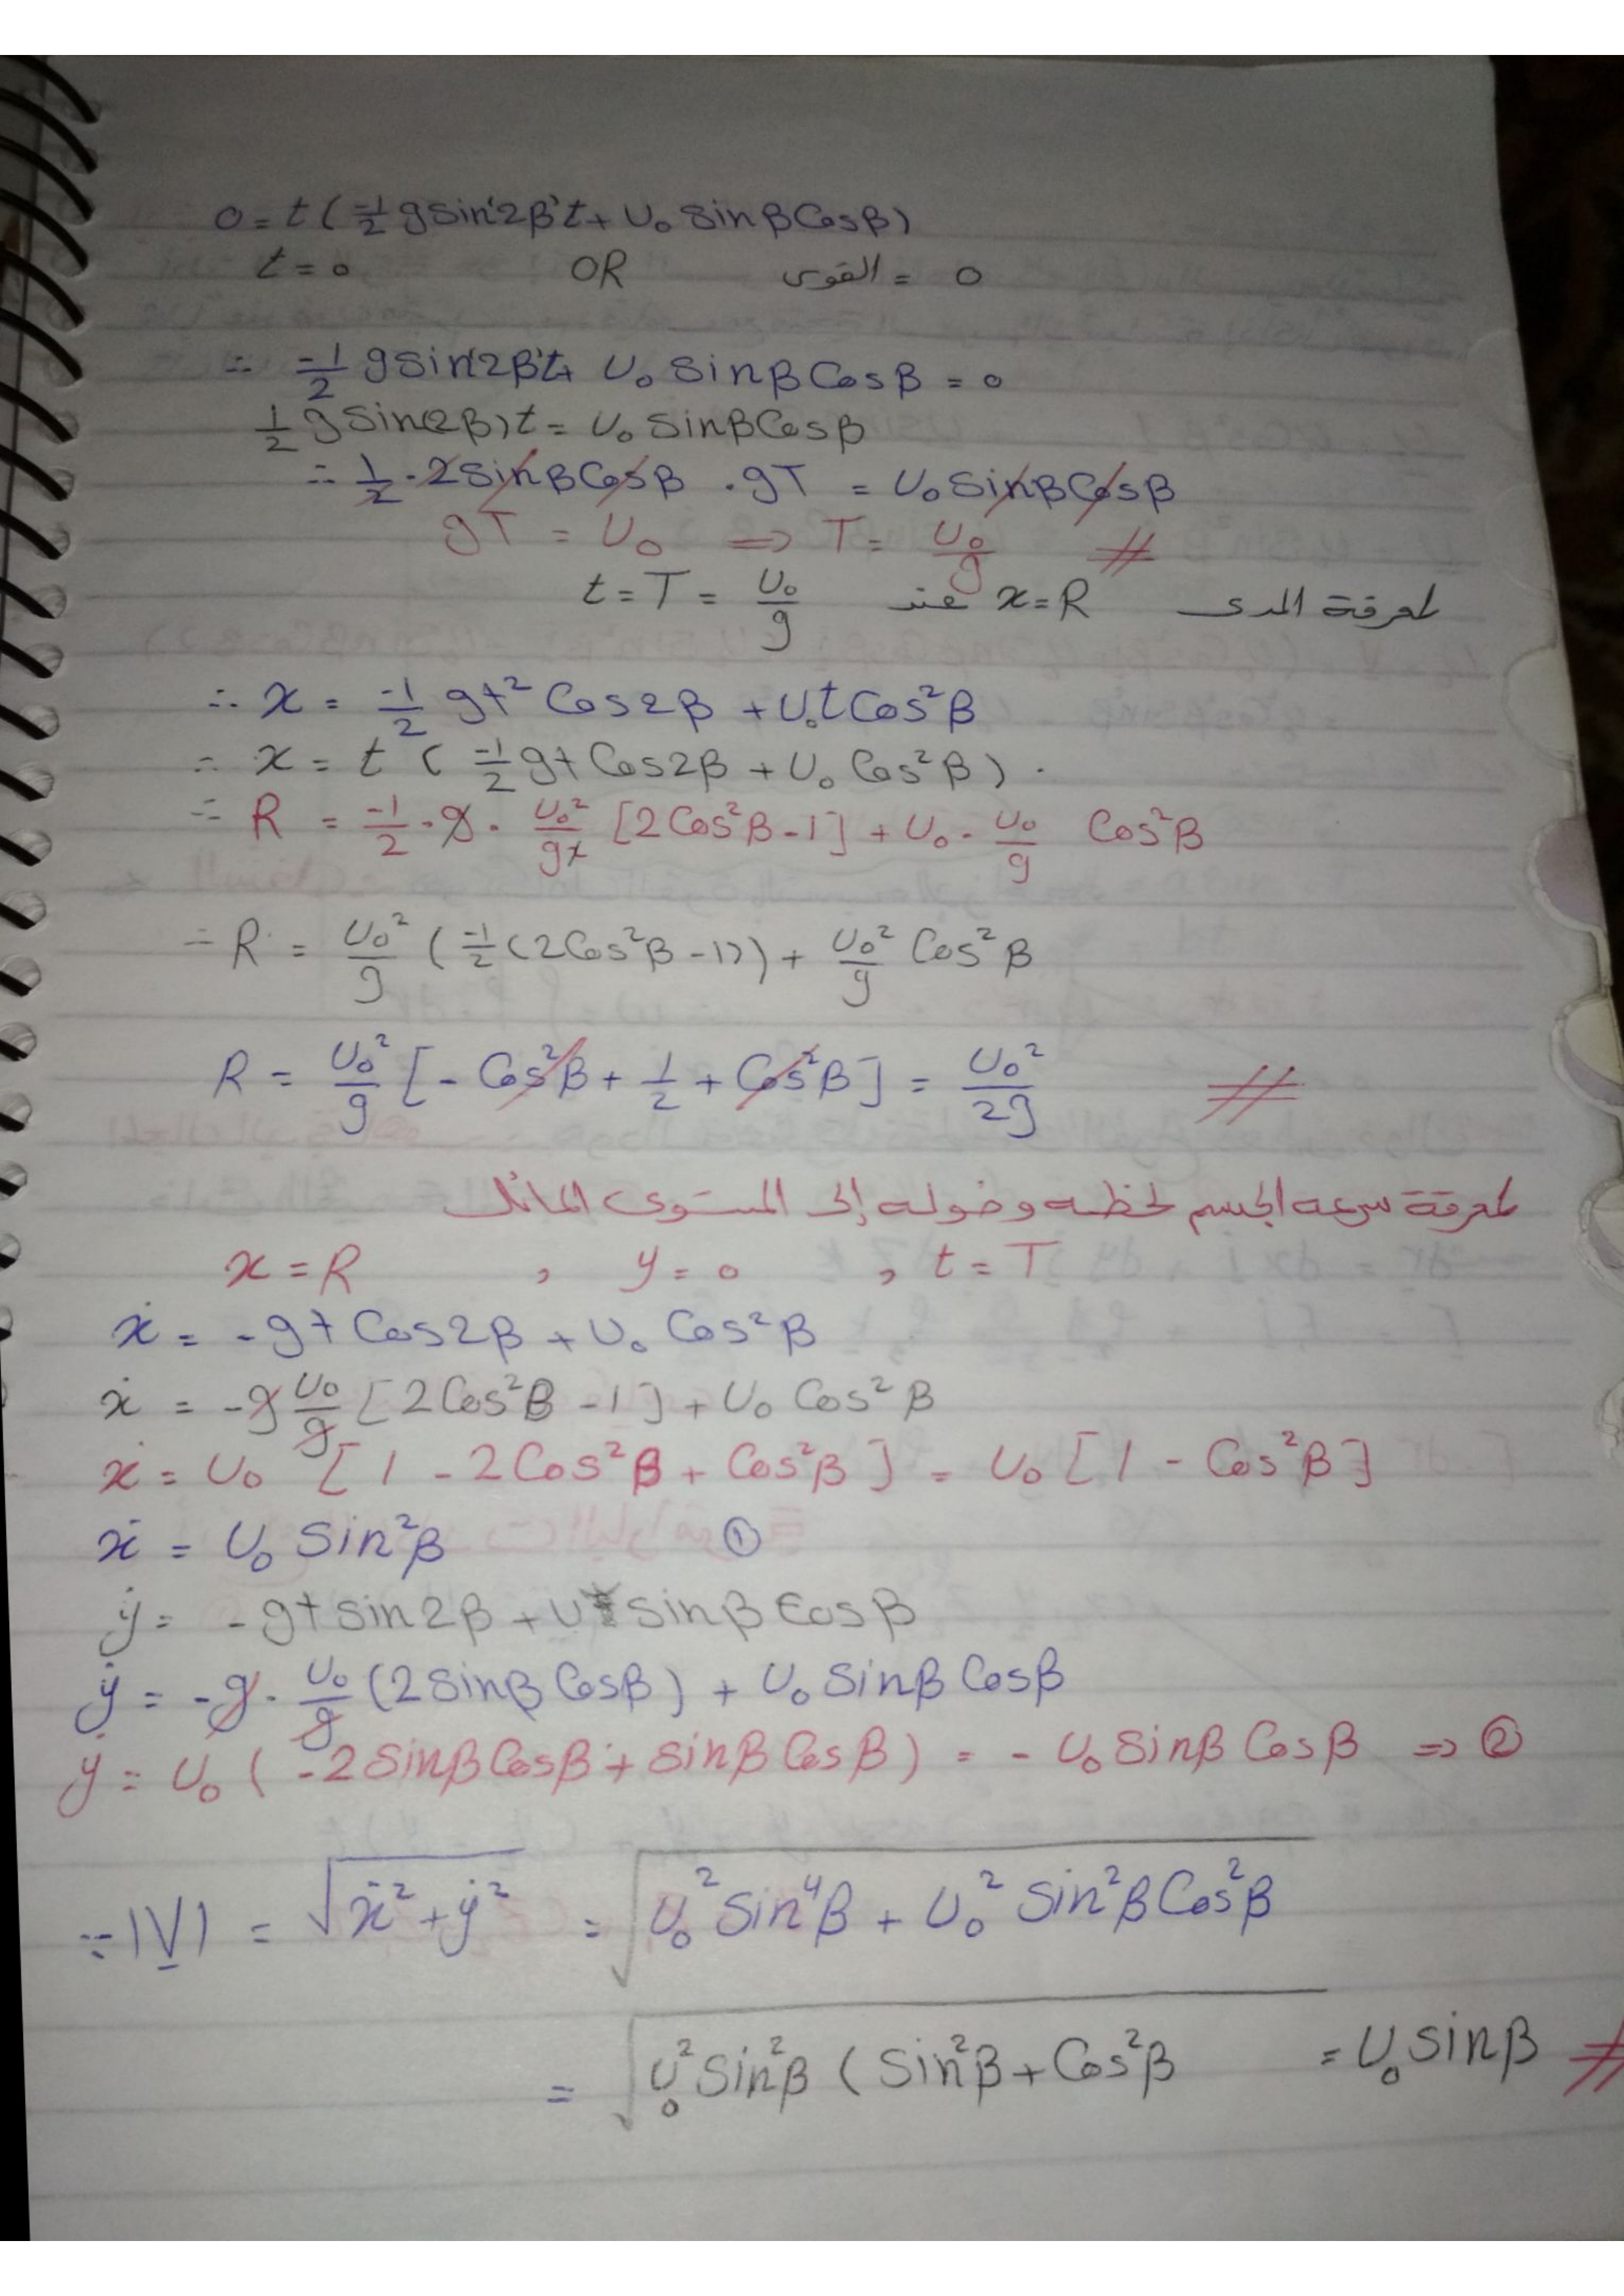 0 = t ( -1/2 g sin(2β) t + U₀ sinβ Cosβ )
t = 0 OR القوى = 0
∴ -1/2 g sin(2β) t + U₀ sinβ Cosβ = 0
1/2 g Sin(2β) t = U₀ SinβCosβ
∴ 1/2 · 2SinβCosβ · gT = U₀ SinβCosβ
gT = U₀ ⇒ T = U₀/g #
لمعرفة المدى x = R عند t = T = U₀/g
∴ x = -1/2 gt² Cos2β + U₀t Cos²β
∴ x = t ( -1/2 gt Cos2β + U₀ Cos²β ) .
∴ R = -1/2 · g · U₀²/g² [2Cos²β - 1] + U₀ · U₀/g Cos²β
∴ R = U₀²/g ( -1/2 (2Cos²β - 1)) + U₀²/g Cos²β
R = U₀²/g [ - Cos²β + 1/2 + Cos²β ] = U₀²/2g #
لمعرفة سرعه الجسم لحظه وصوله إلى المستوى المائل
x = R , y = 0 , t = T
ẋ = - gt Cos2β + U₀ Cos²β
ẋ = - g U₀/g [2Cos²β - 1] + U₀ Cos²β
ẋ = U₀ [1 - 2Cos²β + Cos²β] = U₀ [1 - Cos²β]
ẋ = U₀ Sin²β ①
ẏ = - gt sin2β + U sinβ Cosβ
ẏ = - g · U₀/g (2Sinβ Cosβ) + U₀ Sinβ Cosβ
ẏ = U₀ ( -2SinβCosβ + sinβ Cosβ ) = - U₀ Sinβ Cosβ ⇒ ②
∴ |V| = √ẋ² + ẏ² = √U₀² Sin⁴β + U₀² Sin²β Cos²β
= √U₀² Sin²β ( Sin²β + Cos²β = U₀ sinβ #